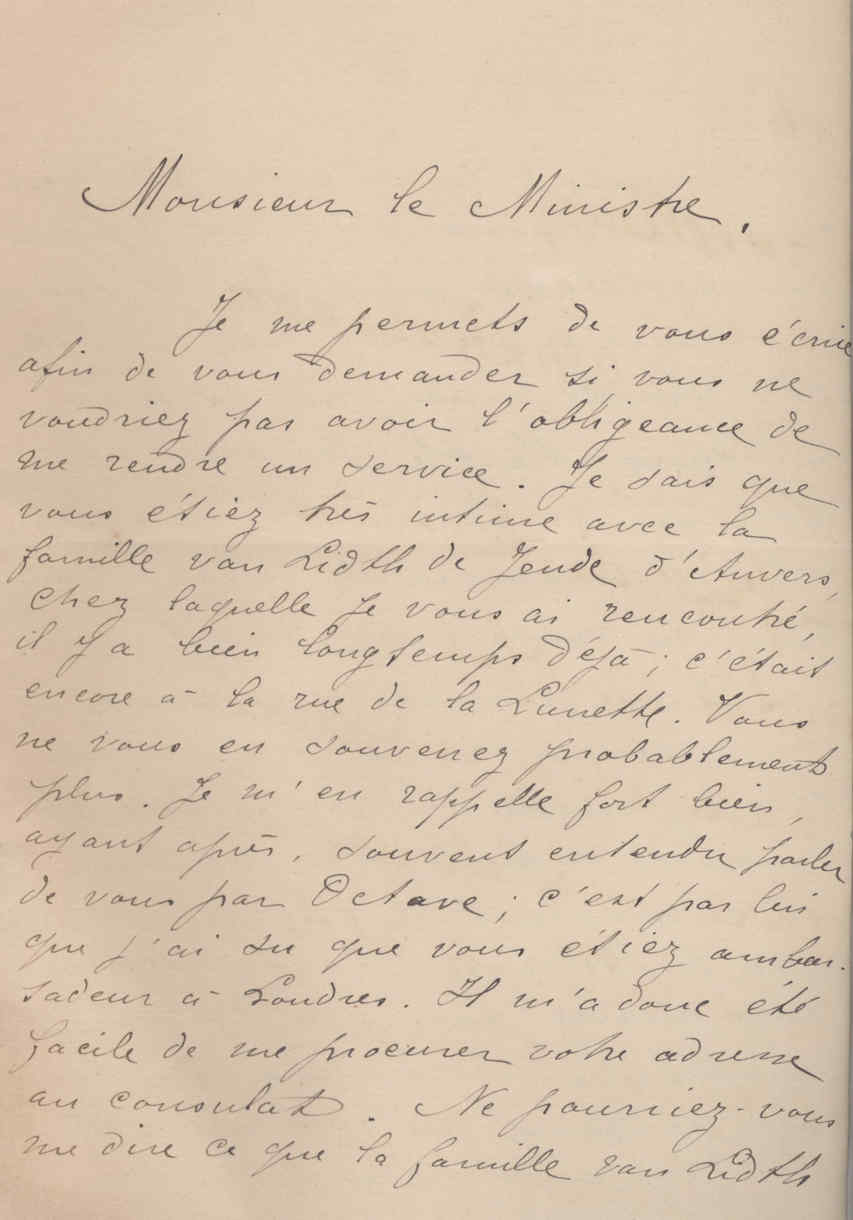 Monsieur le Ministre.
Je me permets de vous écrire
afin de vous demander si vous ne
voudriez pas avoir l'obligeance de
me rendre un service. Je sais que
vous étiez très intime avec la
famille van Lidth de Jeude d'Anvers,
chez laquelle je vous ai rencontré,
il y a bien longtemps déjà; c'était
encore à la rue de la Lunette. Vous
ne vous en souvenez probablement
plus. Je m'en rappelle fort bien,
ayant après, souvent entendu parler
de vous par Octave; c'est par lui
que j'ai su que vous étiez ambas-
sadeur à Londres. Il m'a donc été
facile de me procurer votre adresse
au consulat. Ne pourriez-vous
me dire ce que la famille van Lidth